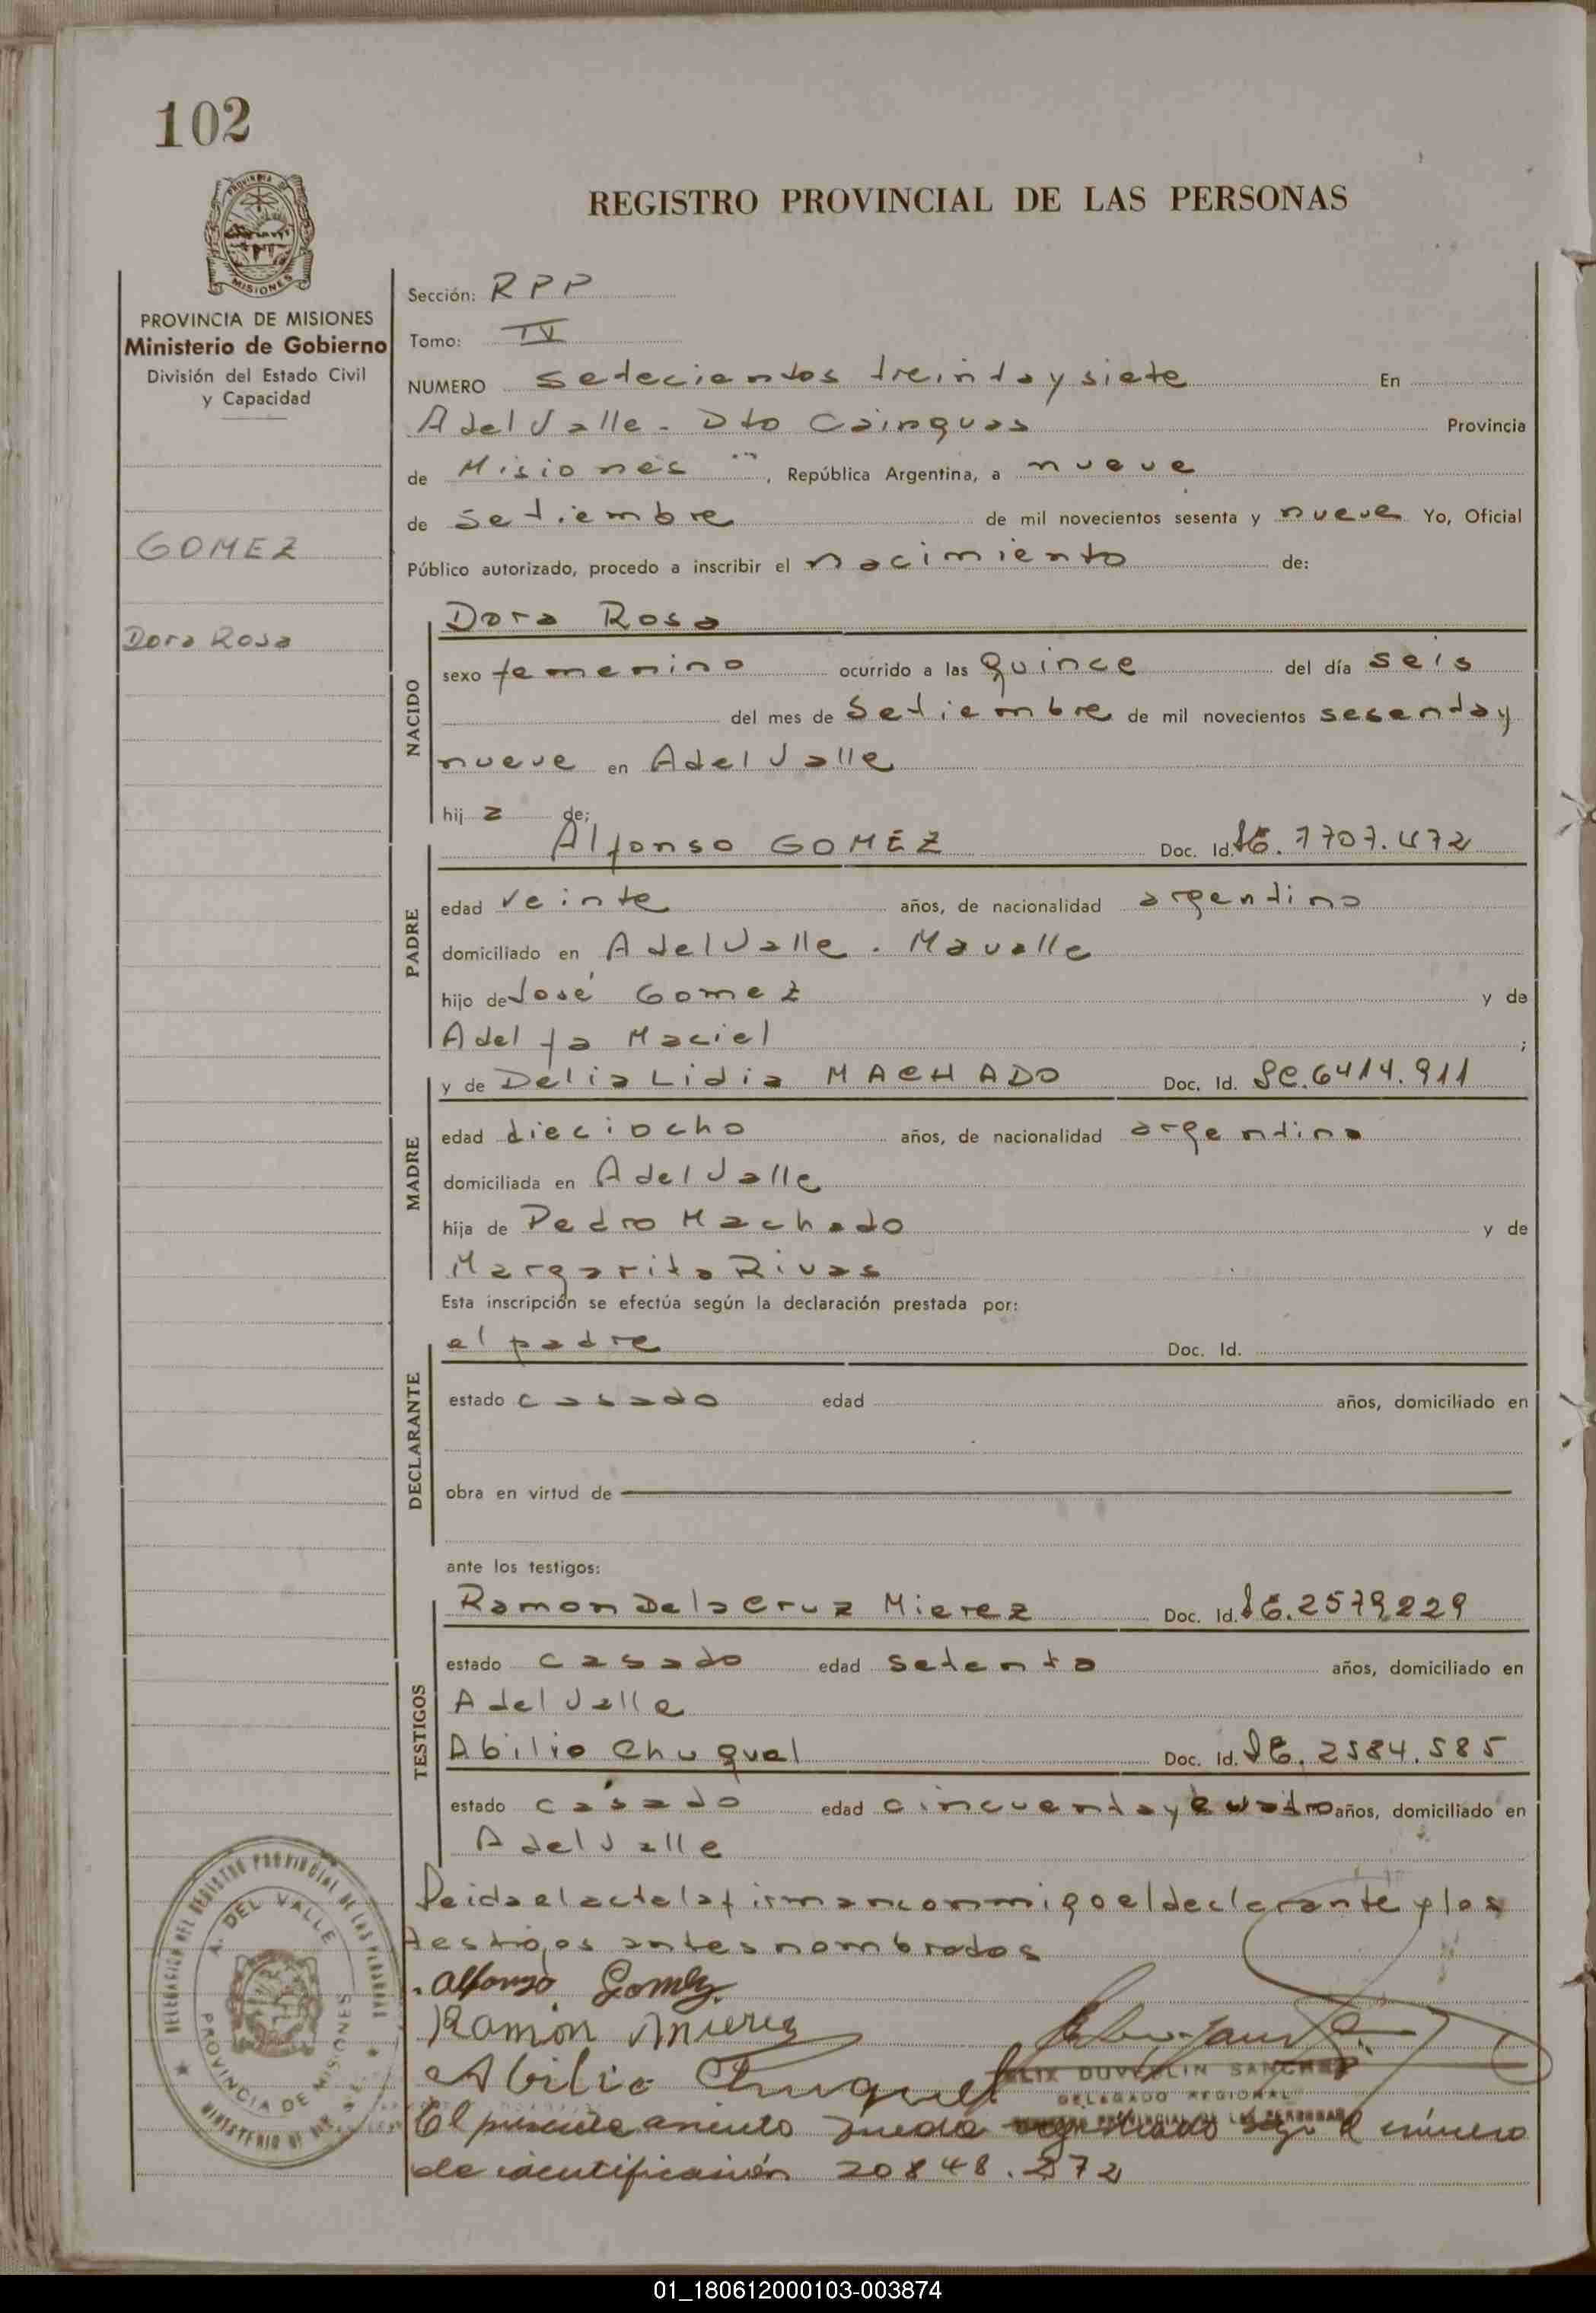 102
REGISTRO PROVINCIAL DE LAS PERSONAS
PROVINCIA DE MISIONES
Ministerio de Gobierno
División del Estado Civil
y Capacidad
GOMEZ
Dora Rosa
Sección: RPP
Tomo: IV
NUMERO Setecientos treinta y siete En
A del Valle - Dto Cainguas Provincia
de Misiones, República Argentina, a nueve
de Setiembre de mil novecientos sesenta y nueve Yo, Oficial
Público autorizado, procedo a inscribir el nacimiento de:
NACIDO
Dora Rosa
sexo femenino ocurrido a las quince del día seis
del mes de Setiembre de mil novecientos sesenta y
nueve en A del Valle
hija de:
PADRE
Alfonso GOMEZ Doc. Id.
edad veinte años, de nacionalidad argentino
domiciliado en A del Valle - Mavalle
hijo de José Gomez y de
Adelfa Maciel ;
MADRE
y de Delia Lidia MACHADO Doc. Id. 6414.911
edad dieciocho años, de nacionalidad argentina
domiciliada en A del Valle
hija de Pedro Machado y de
Margarita Rivas
Esta inscripción se efectúa según la declaración prestada por:
DECLARANTE
el padre Doc. Id.
estado casado edad años, domiciliado en
obra en virtud de
ante los testigos:
TESTIGOS
Ramon De la Cruz Mierez Doc. Id. 2579.229
estado casado edad setenta años, domiciliado en
A del Valle
Abilio Chuquel Doc. Id. 2584.585
estado casado edad cincuenta y cuatro años, domiciliado en
A del Valle
Leida el acta la firman conmigo el declarante y los
testigos antes nombrados
Alfonzo Gomez
Ramón Mierez
Abilio Chuquel
FELIX DUVERLIN SANCHEZ
DELEGADO REGIONAL
REGISTRO PROVINCIAL DE LAS PERSONAS
El presente asiento queda registrado bajo el número
de identificación 20848.272
DELEGACION DEL REGISTRO PROVINCIAL DE LAS PERSONAS
A. DEL VALLE
PROVINCIA DE MISIONES
01_180612000103-003874